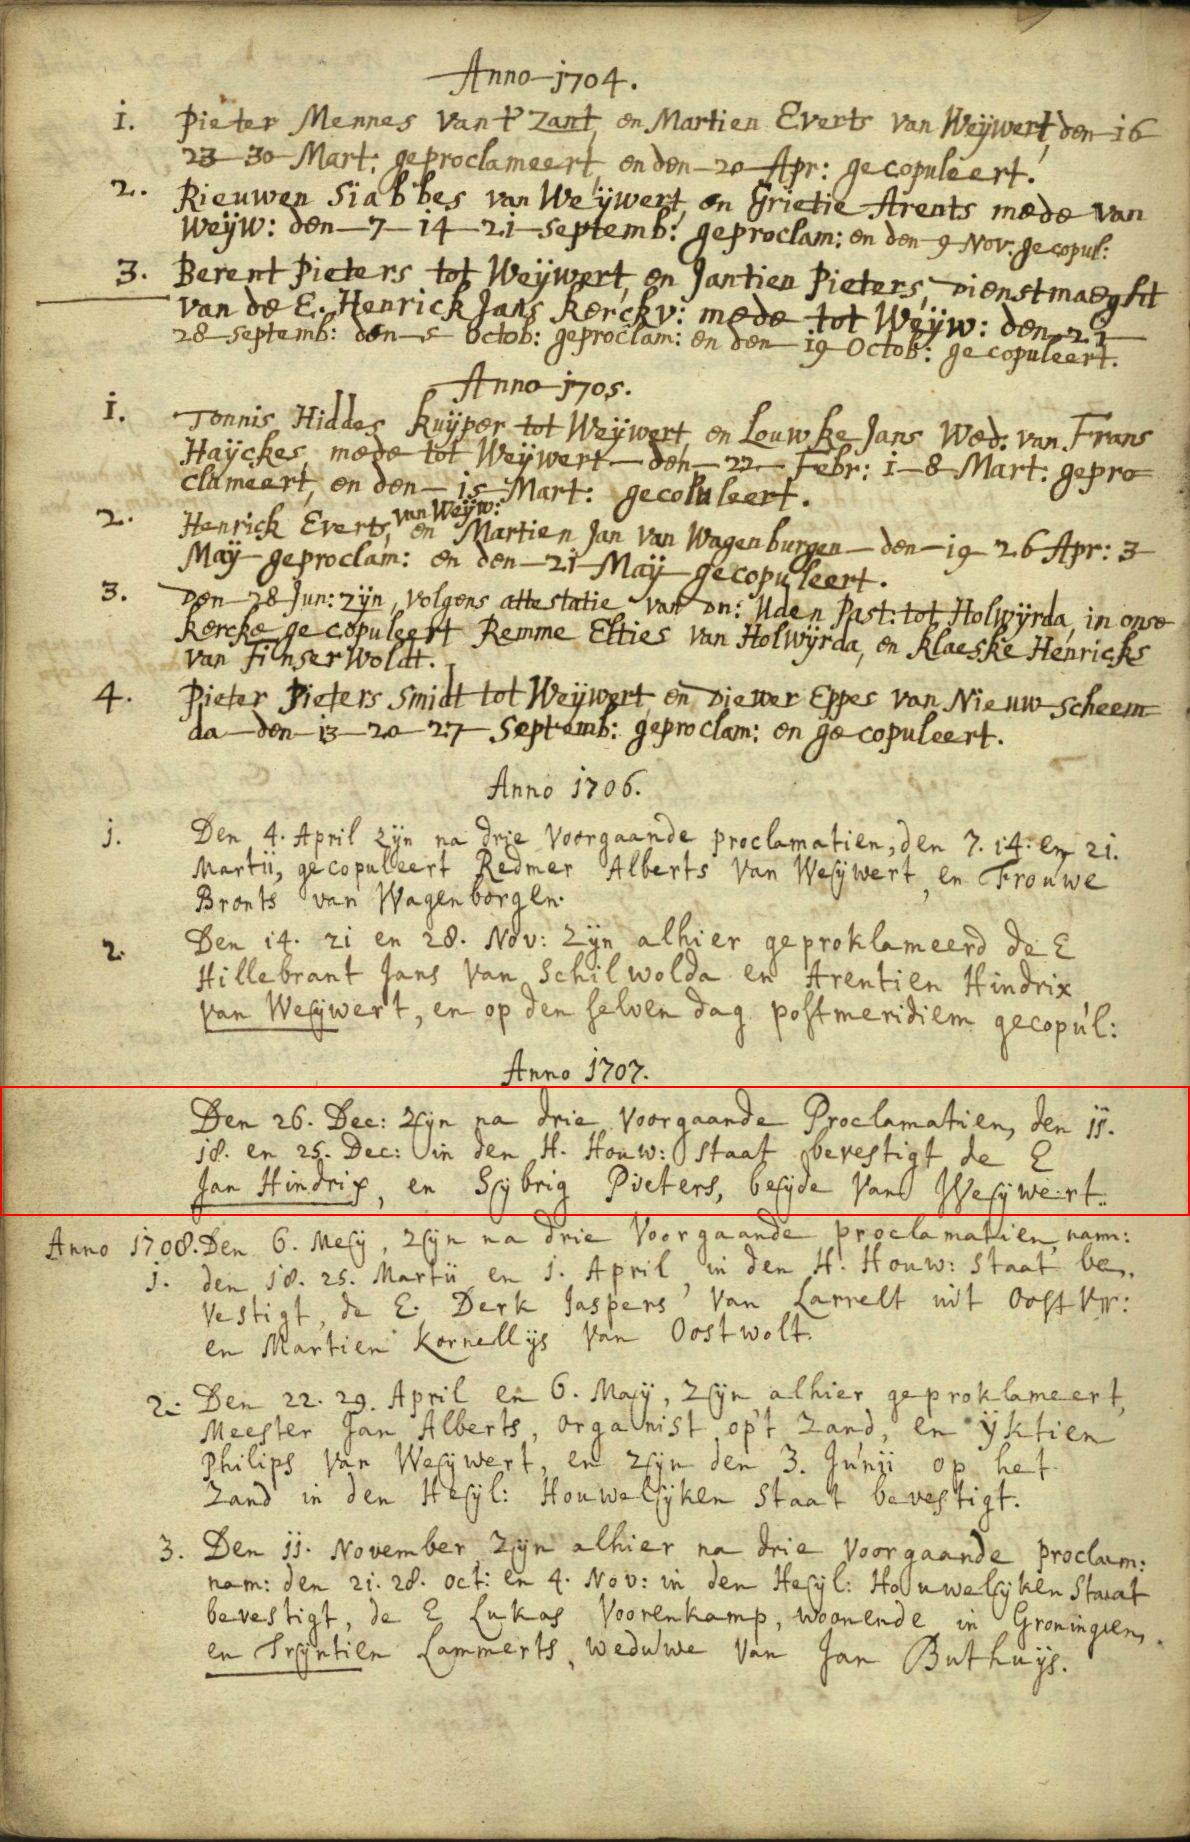 Anno 1704.
1. Pieter Mennes van 't Zant, en Martien Everts van Weÿwert, den 16
23 30 Mart: geproclameert, en den 20 Apr: gecopuleert.
2. Rieuwen Siabbes van Weÿwert, en Grietie Arents mede van
Weÿw: den 7 14 21 septemb: geproclam: en den 9 Nov. gecopul:
3. Berent Pieters tot Weÿwert, en Jantien Pieters, Dienstmaeght
van de E. Henrick Jans kerckv: mede tot Weÿw: den 21
28 septemb: den 5 octob: geproclam: en den 19 Octob: gecopuleert.
Anno 1705.
1. Tonnis Hiddes kuÿper tot Weÿwert, en Louwke Jans Wed: van Frans
Haÿckes mede tot Weÿwert den 22 Febr: 1 8 Mart: gepro
clameert, en den 15 Mart: gecopuleert.
2. Henrick Everts, van Weÿw: en Martien Jan van Wagenburgen den 19 26 Apr: 3
Maÿ geproclam: en den 21 Maÿ gecopuleert.
3. Den 28 Jun: zÿn, volgens attestatie van Dn: Uden Past: tot Holwÿrda, in onse
kercke gecopuleert Remme Elties van Holwÿrda, en klaeske Henricks
van Finserwoldt.
4. Pieter Pieters smidt tot Weÿwert, en Diewer Eppes van Nieuw scheem
da den 13 20 27 Septemb: geproclam: en gecopuleert.
Anno 1706.
1. Den 4. April zÿn na drie voorgaande proclamatien, den 7. 14. en 21.
Martii, gecopuleert Redmer Alberts van Weÿwert, en Frouwe
Bronts van Wagenborgen.
2. Den 14. 21 en 28. Nov: zÿn alhier geproklameerd de E
Hillebrant Jans van Schilwolda en Arentien Hindrix
van Weÿwert, en op den selven dag postmeridiem gecopul:
Anno 1707.
Den 26. Dec: zÿn na drie voorgaande Proclamatien, den 11.
18. en 25. Dec: in den H. Houw: staat bevestigt de E
Jan Hindrix, en Sÿbrig Pieters, beÿde van Weÿwert.
Anno 1708. Den 6. Meÿ, zÿn na drie voorgaande proclamatien, nam:
1. den 18. 25. Martii en 1. April, in den H. Houw: staat be,
vestigt, de E. Derk Jaspers van Larrelt uit Oost
en Martien kornellÿs van Oostwolt.
2. Den 22. 29. April en 6. Maÿ, zÿn alhier geproklameert,
Meester Jan Alberts, organist op't Zand, en ÿktien
Philips van Weÿwert, en zÿn den 3. Junii op het
Zand in den Heÿl: Houwelÿken staat bevestigt.
3. Den 11. November zÿn alhier na drie voorgaande proclam:
nam: den 21. 28. oct: en 4. Nov: in den Heÿl: Houwelÿken staat
bevestigt, de E Lukas Voorenkamp, woonende in Groningen,
en Trÿntien Lammerts, weduwe van Jan Buthuÿs.